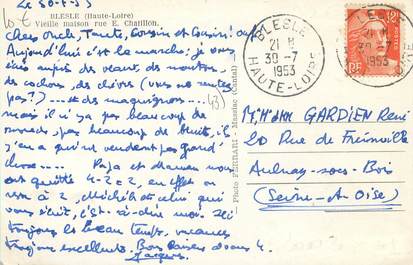 Le 30-7-53
BLESLE (Haute-Loire)
Vieille maison rue E. Chatillon.
Chers oncle, Tante, Cousin et Cousine!
Aujourd'hui c'est le marché; je vous
des veaux, des moutons,
de cochons, des chèvres (vous ne
pas?) des maquignons
mais il y a pas beaucoup de
monde, pas beaucoup de bruit, il
y en a qui ne vendent pas grand'
chose.... Papa et Maman nous
ont quitté 4-2=2, en effet on
est à 2, Michel et celui qui
vous écrit, c'est-à-dire moi. Ici
toujours le beau temps, vacances
toujours excellentes. Bons baisers à vous 4.
Jacques.
Photo FERRARI - Massiac (Cantal)
BLESLE
21 H
30-7
1953
HAUTE-LOIRE
BLESLE
30-7
1953
HAUTE-LOIRE
12F
Mr Mme GARDIEN René
20 Rue de
Aulnay-sous-Bois
(Seine-et-Oise)